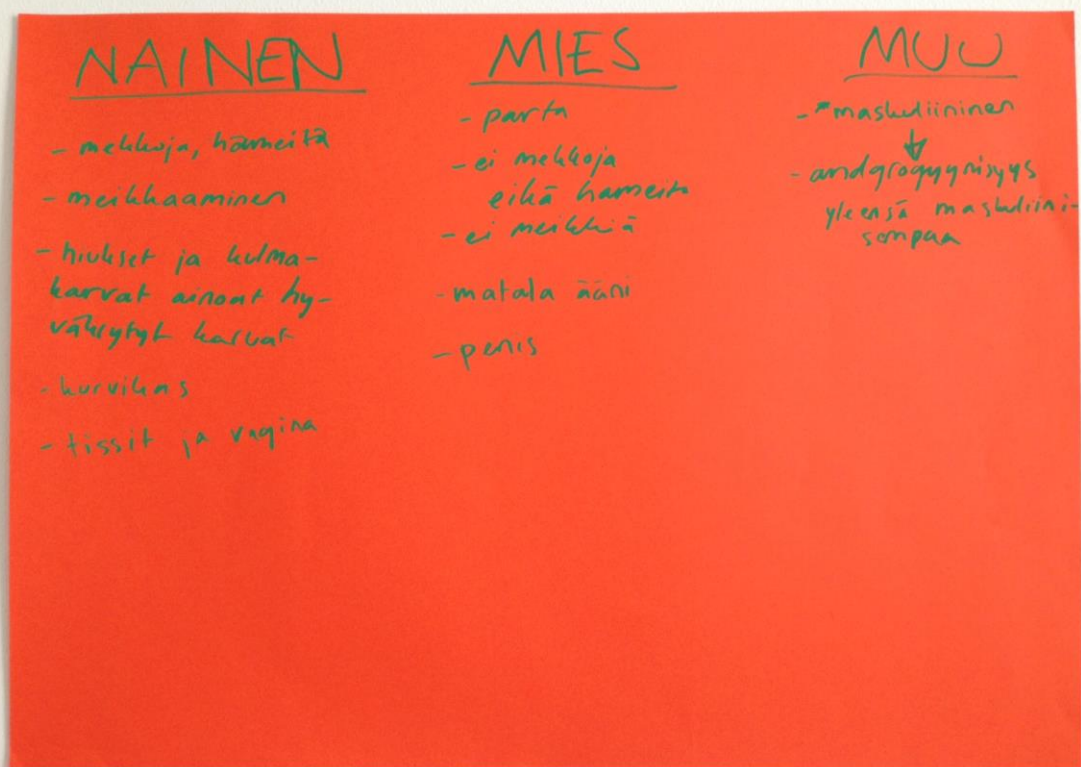 NAINEN
- mekkoja, hameita
- meikkaaminen
- hiukset ja kulma-
karvat ainoat hy-
väksytyt karvat
- kurvikas
- tissit ja vagina
MIES
- parta
- ei mekkoja
eikä hameita
- ei meikkiä
- matala ääni
- penis
MUU
- maskuliininen
- androgyynisyys
yleensä maskuliini-
sempaa